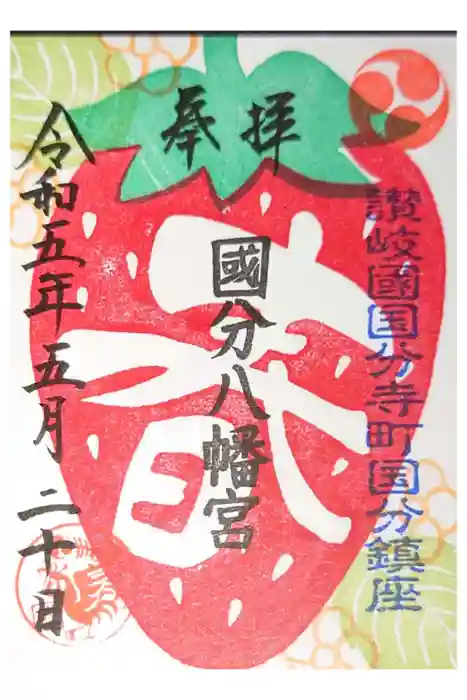 讃岐國国分寺町国分鎮座
奉拝
春
國分八幡宮
令和五年五月二十日